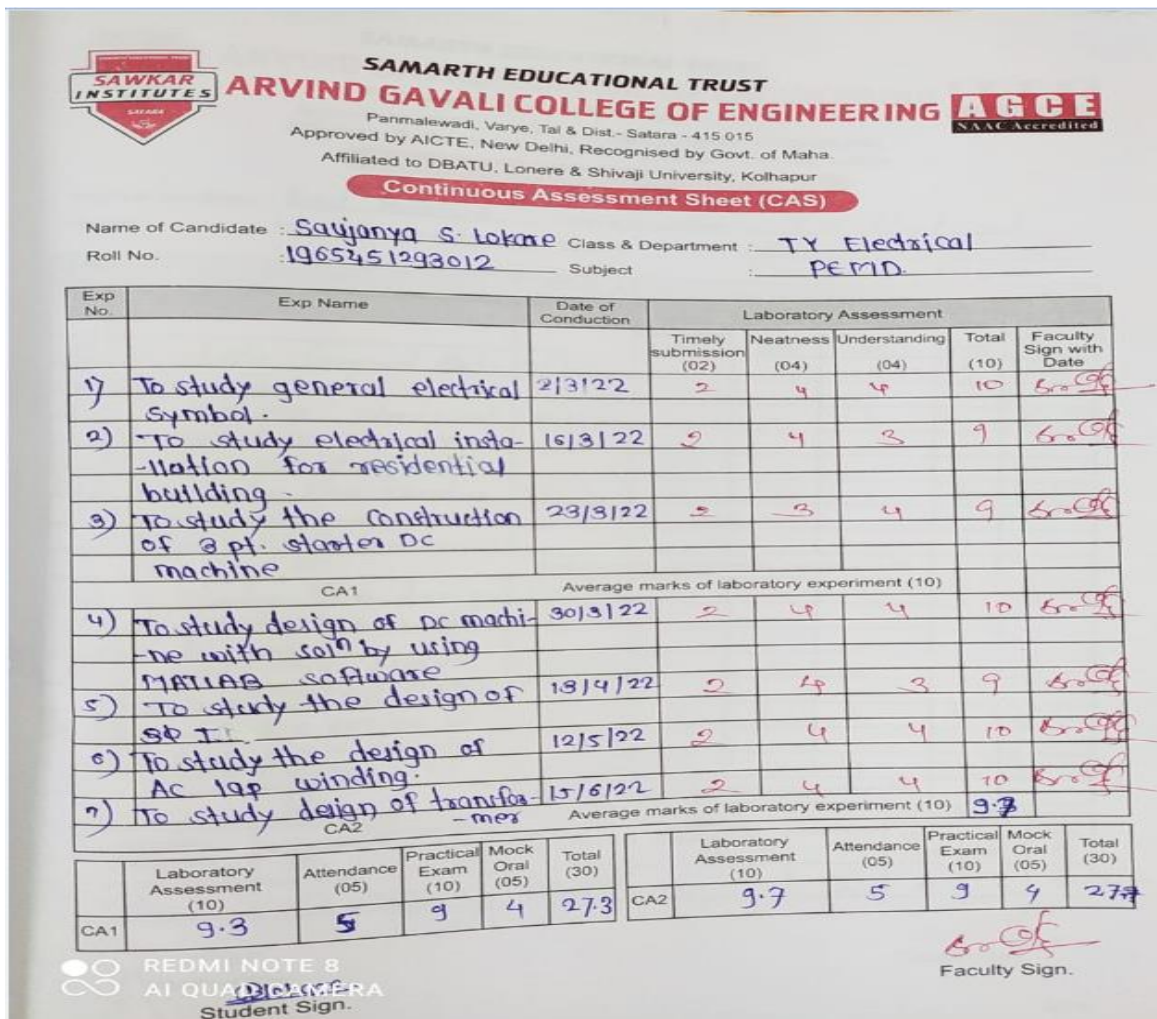 SAWKAR
INSTITUTES
SATARA
SAMARTH EDUCATIONAL TRUST
ARVIND GAVALI COLLEGE OF ENGINEERING
AGCE
NAAC Accredited
Panmalewadi, Varye, Tal & Dist.- Satara - 415 015
Approved by AICTE, New Delhi, Recognised by Govt. of Maha.
Affiliated to DBATU, Lonere & Shivaji University, Kolhapur
Continuous Assessment Sheet (CAS)
Name of Candidate : Saujanya S. Lokare Class & Department : TY Electrical
Roll No. : 1965451293012 Subject : PEMD.
Exp No. Exp Name Date of Conduction Laboratory Assessment
Timely submission (02) Neatness (04) Understanding (04) Total (10) Faculty Sign with Date
1) To study general electrical 2/3/22 2 4 4 10
symbol.
2) To study electrical insta- 16/3/22 2 4 3 9
-llation for residential
building.
3) To study the construction 23/3/22 2 3 4 9
of 3 pt. starter DC
machine
CA1 Average marks of laboratory experiment (10)
4) To study design of DC machi- 30/3/22 2 4 4 10
-ne with soln by using
MATLAB software
5) To study the design of 13/4/22 2 4 3 9
3Φ I.
6) To study the design of 12/5/22 2 4 4 10
AC lap winding.
7) To study deign of transfor- 15/6/22 2 4 4 10
-mer
CA2 Average marks of laboratory experiment (10) 9.7
Laboratory Assessment (10) Attendance (05) Practical Exam (10) Mock Oral (05) Total (30)
CA1 9.3 5 9 4 27.3
Laboratory Assessment (10) Attendance (05) Practical Exam (10) Mock Oral (05) Total (30)
CA2 9.7 5 9 4 27.7
REDMI NOTE 8
AI QUAD CAMERA
Student Sign.
Faculty Sign.